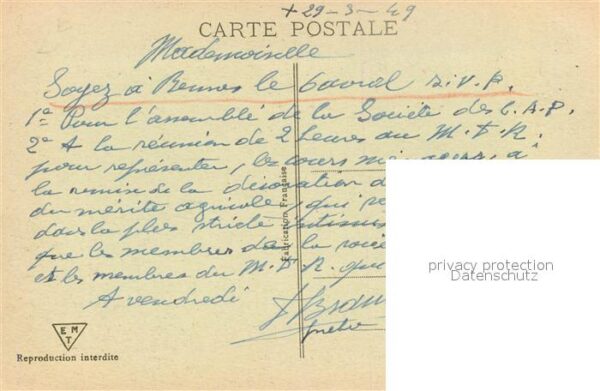 + 29-3-49
CARTE POSTALE
Mademoiselle
Soyez à Rennes le 6 avril s.v.p.
1° Pour l'assemblée de la Société des C.A.P.
2° A la réunion de 2 heures au M.D.R.
pour représenter, les cours ménagers, à
la remise de la décoration d
du mérite agricole, qui
dans la plus stricte intimi
que les membres de la socié
et les membres du M.D.R. que
A vendredi
Fabrication Française
privacy protection
Datenschutz
EMT
Reproduction interdite